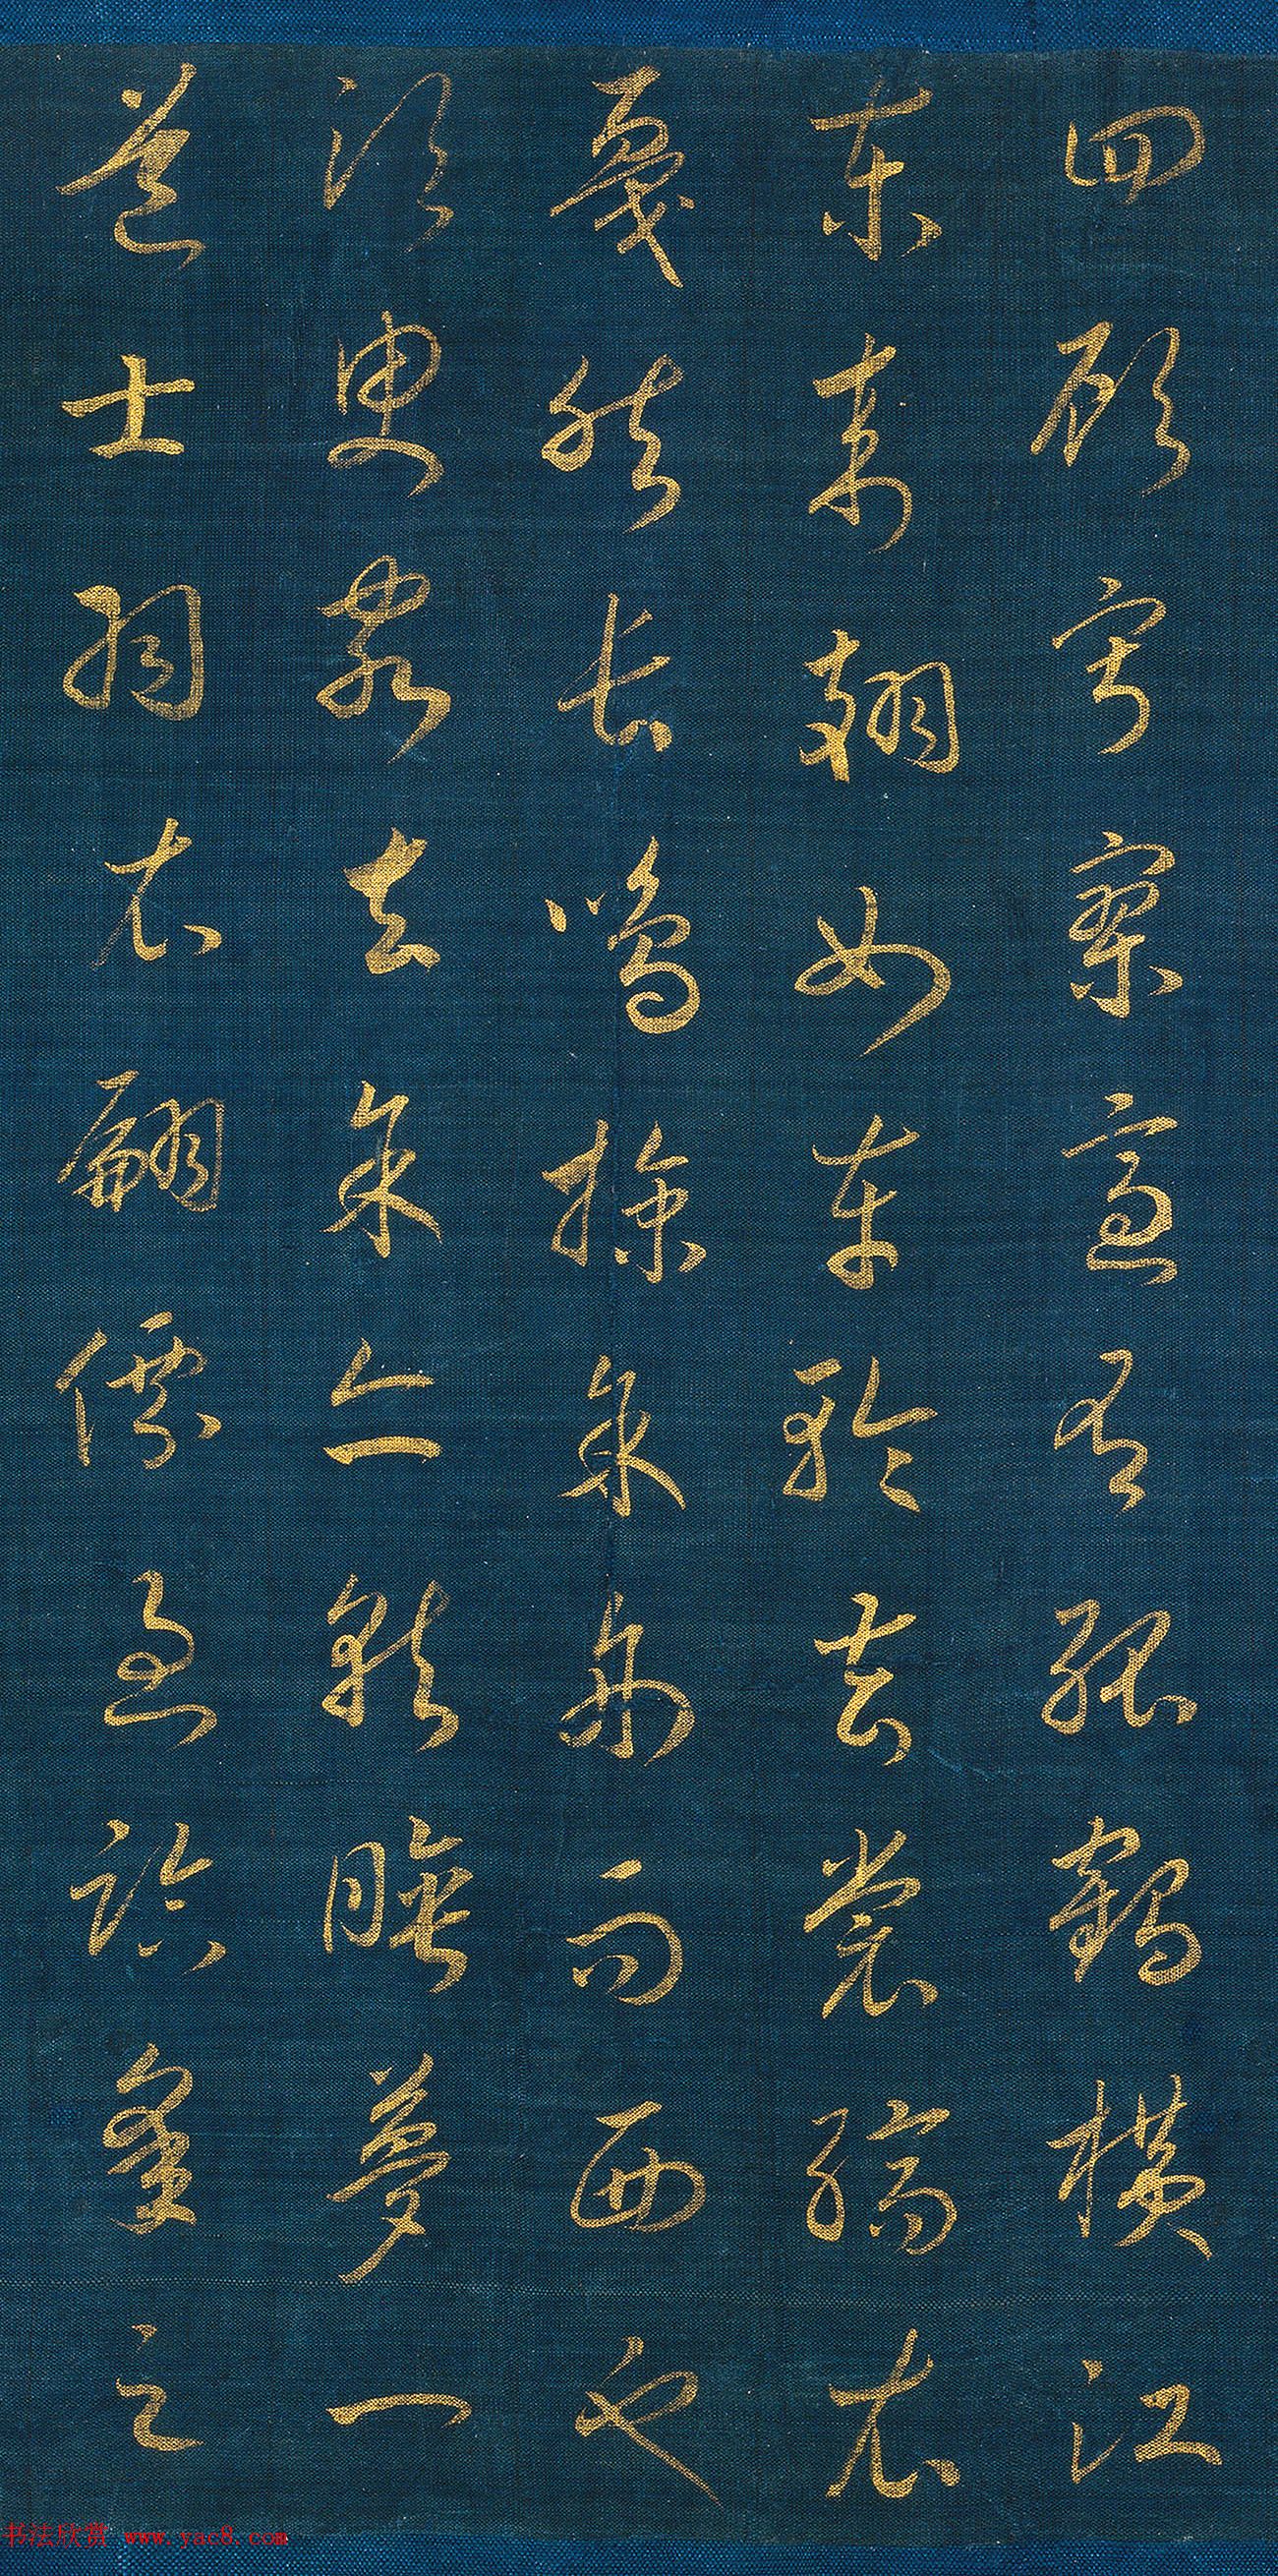 四顾寂寥适有孤鹤横江
东来翅如车轮玄裳缟衣
戛然长鸣掠余舟而西也
须臾客去余亦就睡梦一
道士羽衣翩僊过临皋之
书法欣赏 www.yac8.com